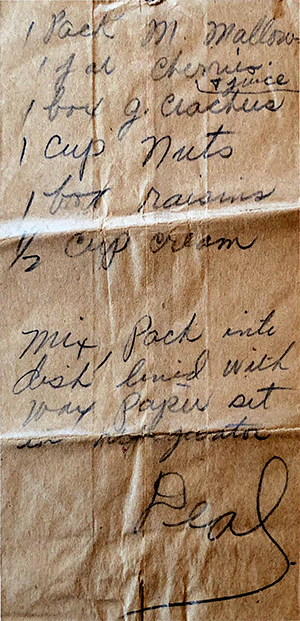 1 Pack M. Mallow
1 jar Cherries
+ juice
1 box g. crackers
1 cup Nuts
1 box raisins
1/2 cup cream
Mix, Pack into
dish lined with
wax paper set
in refrigerator
Peal